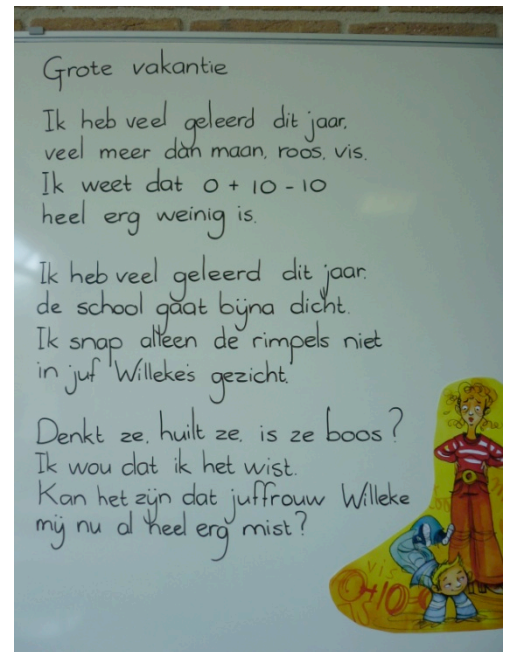 Grote vakantie
Ik heb veel geleerd dit jaar,
veel meer dan maan, roos, vis.
Ik weet dat 0 + 10 - 10
heel erg weinig is.
Ik heb veel geleerd dit jaar.
de school gaat bijna dicht.
Ik snap alleen de rimpels niet
in juf Willeke's gezicht.
Denkt ze, huilt ze, is ze boos?
Ik wou dat ik het wist.
Kan het zijn dat juffrouw Willeke
mij nu al heel erg mist?
vis
0+10=